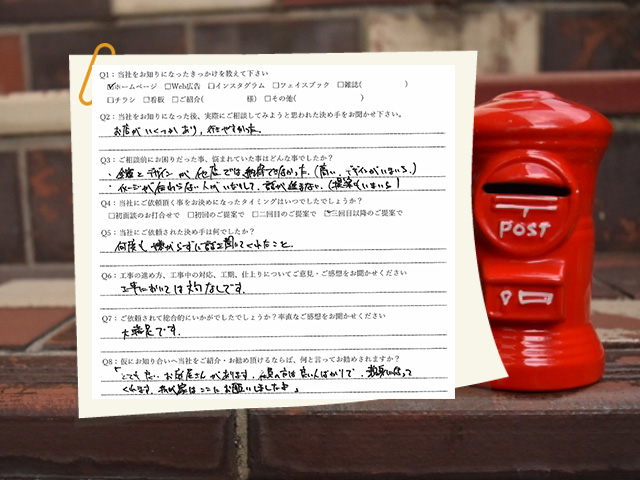 Q1：当社をお知りになったきっかけを教えて下さい
☑ホームページ □Web広告 □インスタグラム □フェイスブック □雑誌（ ）
□チラシ □看板 □ご紹介（ 様） □その他（ ）
Q2：当社をお知りになった後、実際にご相談してみようと思われた決め手をお聞かせ下さい。
お店がいくつかあり、行きやすかった。
Q3：ご相談前にお困りだった事、悩まれていた事はどんな事でしたか？
・金額とデザインが他店では納得できなかった。（高い、デザインがいまいち）
・イメージが伝わらない人が
Q4：当社にご依頼頂く事をお決めになったタイミングはいつでしたでしょうか？
□初面談のお打合せで □初回のご提案で □二回目のご提案で ☑三回目以降のご提案で
Q5：当社にご依頼された決め手は何でしたか？
何度も嫌がらずに話を聞いてくれたこと。
Q6：工事の進め方、工事中の対応、工期、仕上りについてご意見・ご感想をお聞かせください
工事においては文句なしです。
Q7：ご依頼されて総合的にいかがでしたでしょうか？率直なご感想をお聞かせください
大満足です。
Q8：仮にお知り合いへ当社をご紹介・お勧め頂けるならば、何と言ってお勧めされますか？
「とても良いお店屋さんがあります。 は良い人ばかりで、親身になって
くれます。我が家はここにお願いしましたよ」
POST